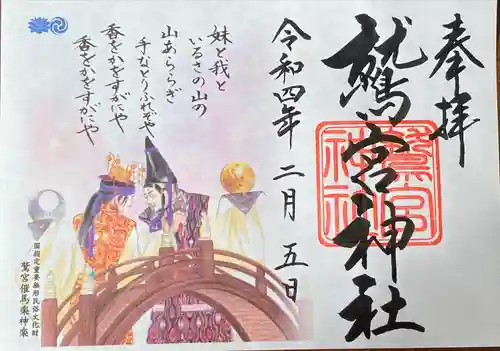 奉拝
鷲宮神社
鷲宮神社
令和四年 二月 五日
妹と我と
いるさの山の
山あららぎ
手なとりふれそや
香をかをすがにや
香をかをすがにや
国指定重要無形民俗文化財
鷲宮催馬楽神楽